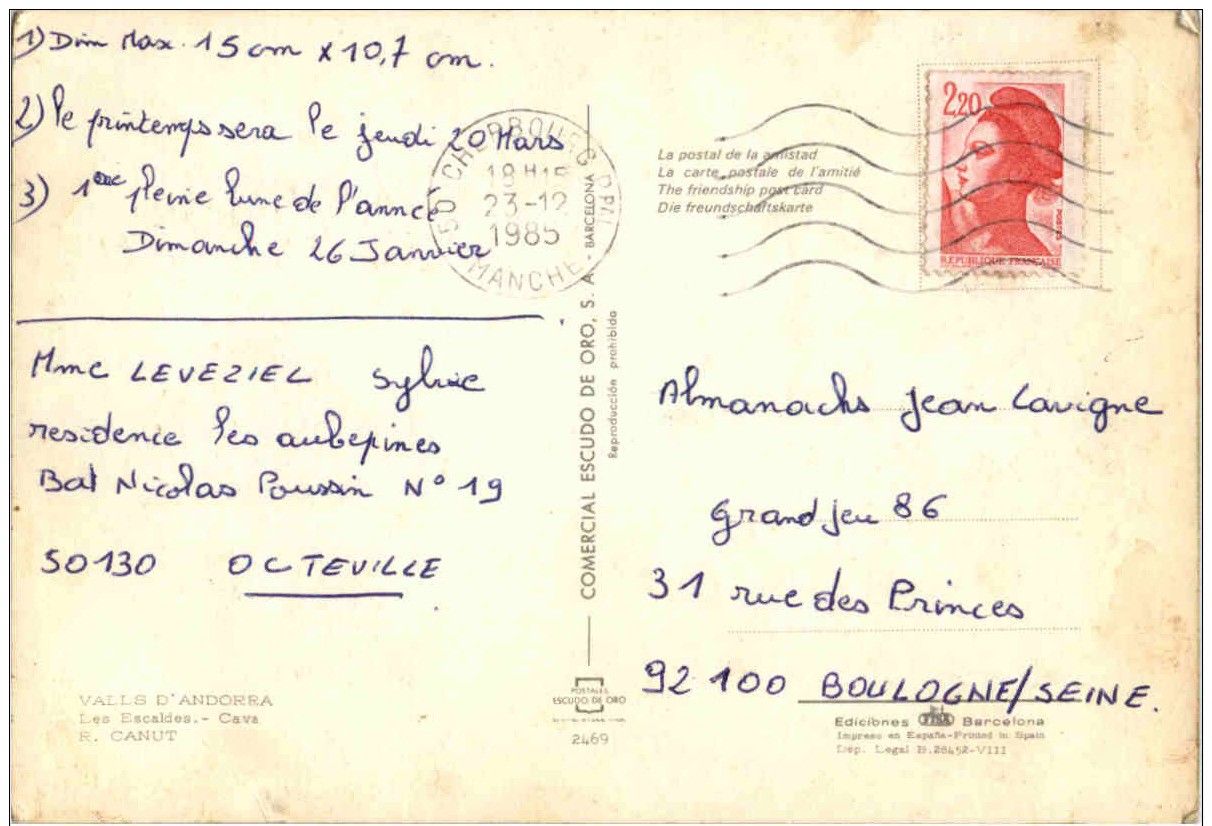 1) Dim Max. 15 cm x 10,7 cm.
2) le printemps sera le jeudi 20 Mars
3) 1ère pleine lune de l'année
Dimanche 26 Janvier
Mme LEVEZIEL Sylvie
residence les aubepines
Bat Nicolas Poussin N° 19
50130 OCTEVILLE
VALLS D'ANDORRA
Les Escaldes.- Cava
R. CANUT
50 CHERBOURG PPAL
18H15
23-12
1985
MANCHE
COMERCIAL ESCUDO DE ORO, S. A. - BARCELONA
Reproducción prohibida
POSTALES
ESCUDO DE ORO
2469
La postal de la amistad
La carte postale de l'amitié
The friendship post card
Die freundschaftskarte
2,20
POSTES
REPUBLIQUE FRANÇAISE
Almanachs Jean Lavigne
Grand jeu 86
31 rue des Princes
92 100 BOULOGNE/SEINE.
Ediciones FISA Barcelona
Impreso en España-Printed in Spain
Dep. Legal B.28452-VIII